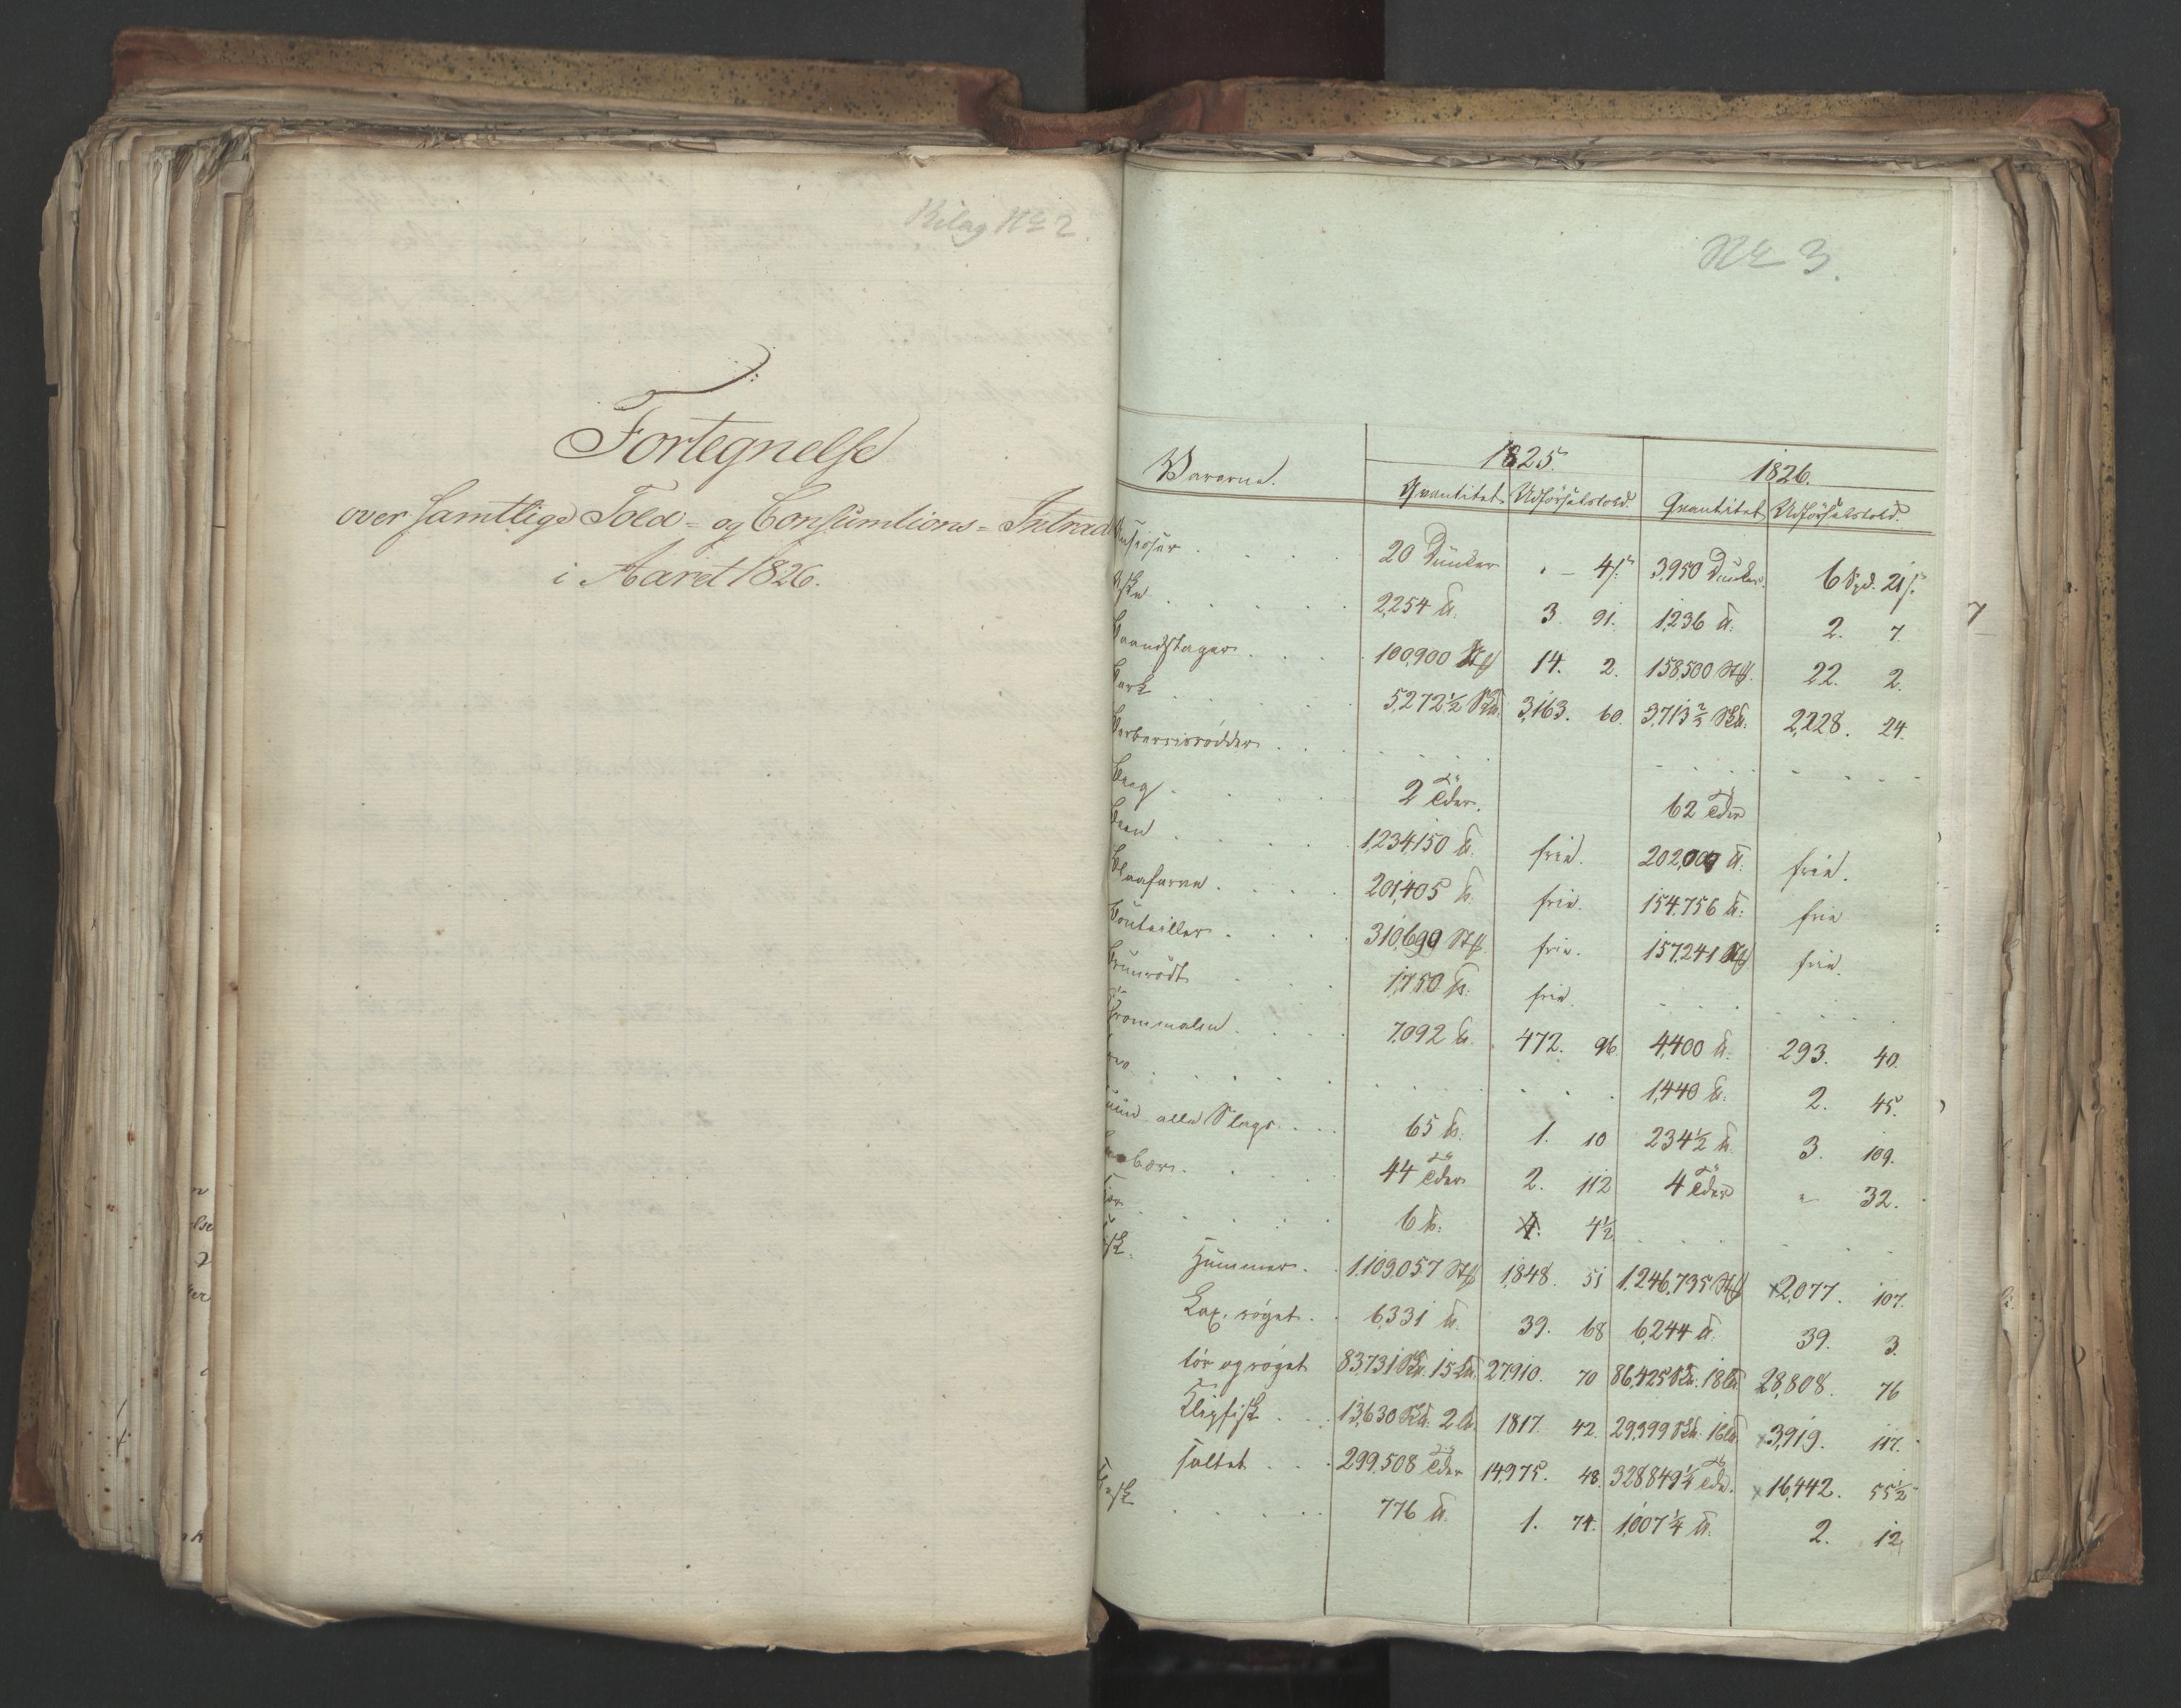 Bilag No 2.
Fortegnelse
over samtlige Told- og Consumtions-Intrad
i Aaret 1826.
No 3.
Varerne. 1825. 1826.
Qvantitet Udförselstold. Qvantitet Udförselstold.
Ansiosur 20 Dunker " - 4 s. 3,950 Dunker. 6 Spd. 21 s.
Aske 2,254 ℔. 3. 91. 1,236 ℔. 2. 7.
Baandstager 100,900 Stk 14. 2. 158,500 Stk. 22. 2.
Bark 5,272½ S℔. 3,163. 60. 3,713⅔ S℔. 2,228. 24.
Berberisrødder
Beeg 2 Tdr. 62 Tdr
Been 1,234,150 ℔. frie. 202,009 ℔. frie.
Blaafarve 201,405 ℔. frie. 154,756 ℔. frie
Bouteiller 310,699 Stk. frie. 157,241 Stk frie.
Bruunrödt 1,750 ℔. frie.
Crommalm 7,092 ℔. 472. 96. 4,400 ℔. 293. 40.
1,440 ℔. 2. 45.
Duun alle Slags 65 ℔. 1. 10 234½ ℔. 3. 109.
Enebær 44 Tdr 2. 112 4 Tdr " 32.
Fjær 6 ℔. 4½
Fisk. Hummer 1,109,057 Stk 1,848. 51 1,246,735 Stk 2,077. 107.
Lax, röget 6,331 ℔. 39. 68 6,244 ℔. 39. 3.
tör og röget 83,731 S℔. 15 L℔. 27,910. 70 86,425 S℔. 18 L℔ 28,808. 76
Klipfisk 13,630 S℔. 2 L℔. 1817. 42. 29,399 S℔. 16 L℔. 3,919. 117.
saltet 299,508 Tdr 14,975. 48. 328,849¼ Tdr. 16,442. 55½
Flesk 776 ℔. 1. 74. 1,007¼ ℔. 2. 12.